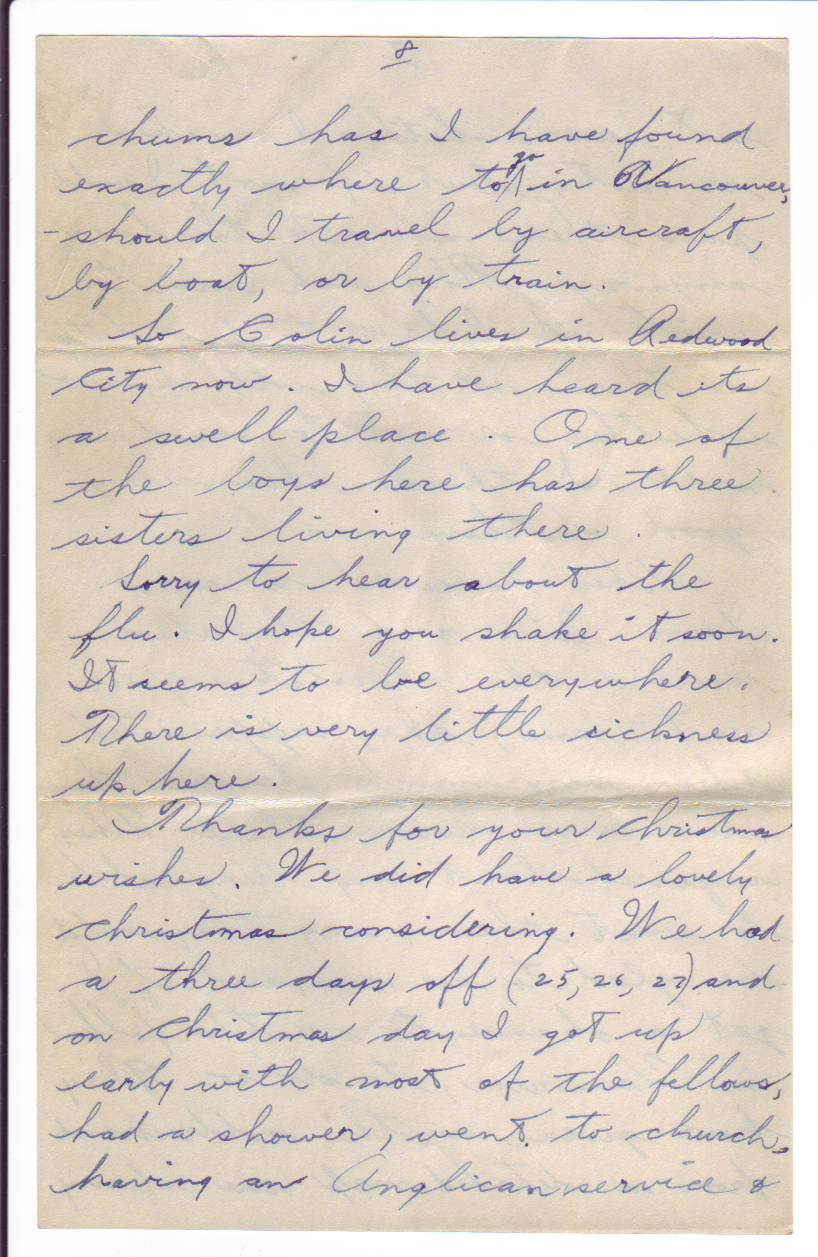 8
chums has I have found
exactly where to go in Vancouver,
- should I travel by aircraft,
by boat, or by train.
So Colin lives in Redwood
City now. I have heard its
a swell place. One of
the boys here has three
sisters living there.
Sorry to hear about the
flu. I hope you shake it soon.
It seems to be everywhere.
There is very little sickness
up here.
Thanks for your Christmas
wishes. We did have a lovely
Christmas considering. We had
a three days off (25, 26, 27) and
on Christmas day I got up
early with most of the fellows,
had a shower, went to church,
having an Anglican service &